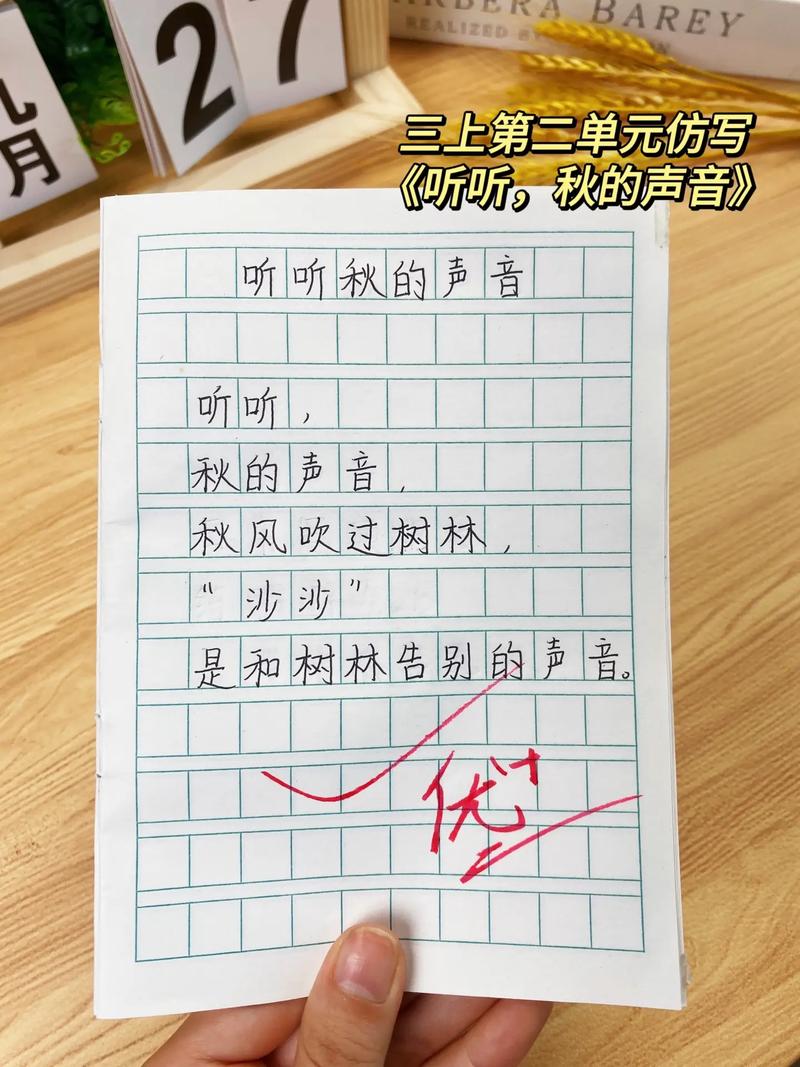 九月
27
BARBERA BAREY
三上第二单元仿写
《听听，秋的声音》
听听秋的声音
听听，
秋的声音，
秋风吹过树林，
“沙沙”
是和树林告别的声音。
优+